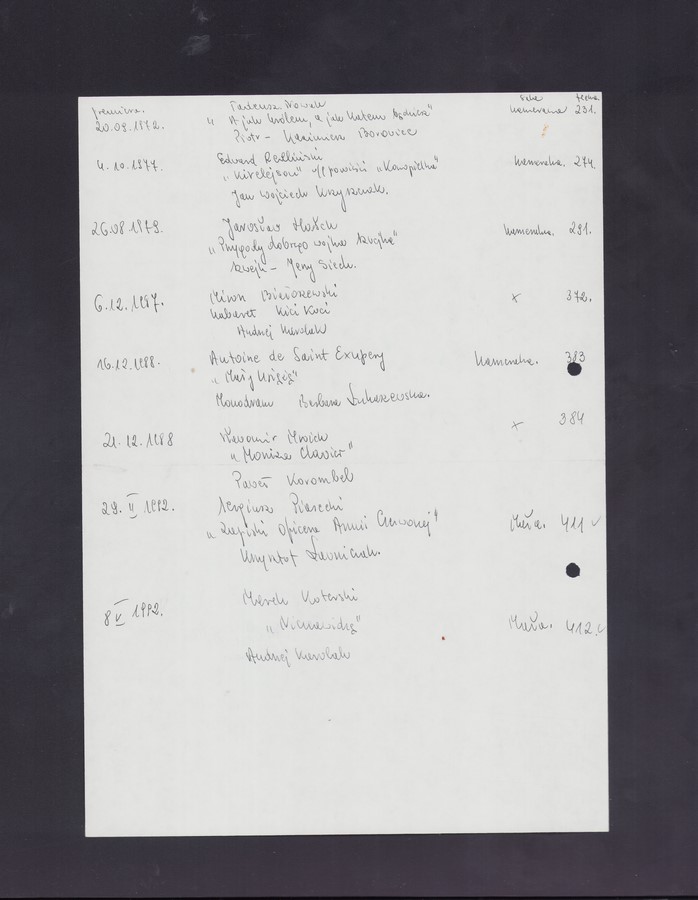 premiera. Tadeusz Nowak Sala teczka
20.09.1972. "A jak królem, a jak katem będziesz" kameralna 231.
Piotr - Kazimierz Borowiec
4.10.1977. Edward Redliński kameralna. 274.
"Kirelejson" wg powieści "Konopielka"
Jan Wojciech Krzyszczak.
26.08 1979. Jarosław Hašek kameralna. 291.
"Przygody dobrego wojaka Szwejka"
Szwejk - Jerzy Siech.
6.12.1987. Miron Białoszewski x 372.
kabaret Kici Koci
Andrzej Karolak
16.12.1988. Antoine de Saint Exupery kameralna. 383
"Mały Książę"
Monodram Barbara Łukaszewska.
21.12.1988 Sławomir Mrożek x 384
"Moniza Clavier"
Paweł Korombel
29. II 1992. Sergiusz Piasecki 411 ✓
"Zapiski oficera Armii Czerwonej"
Krzysztof Ławniczak.
8 V 1992. Marek Koterski 412. ✓
"Nienawidzę"
Andrzej Karolak